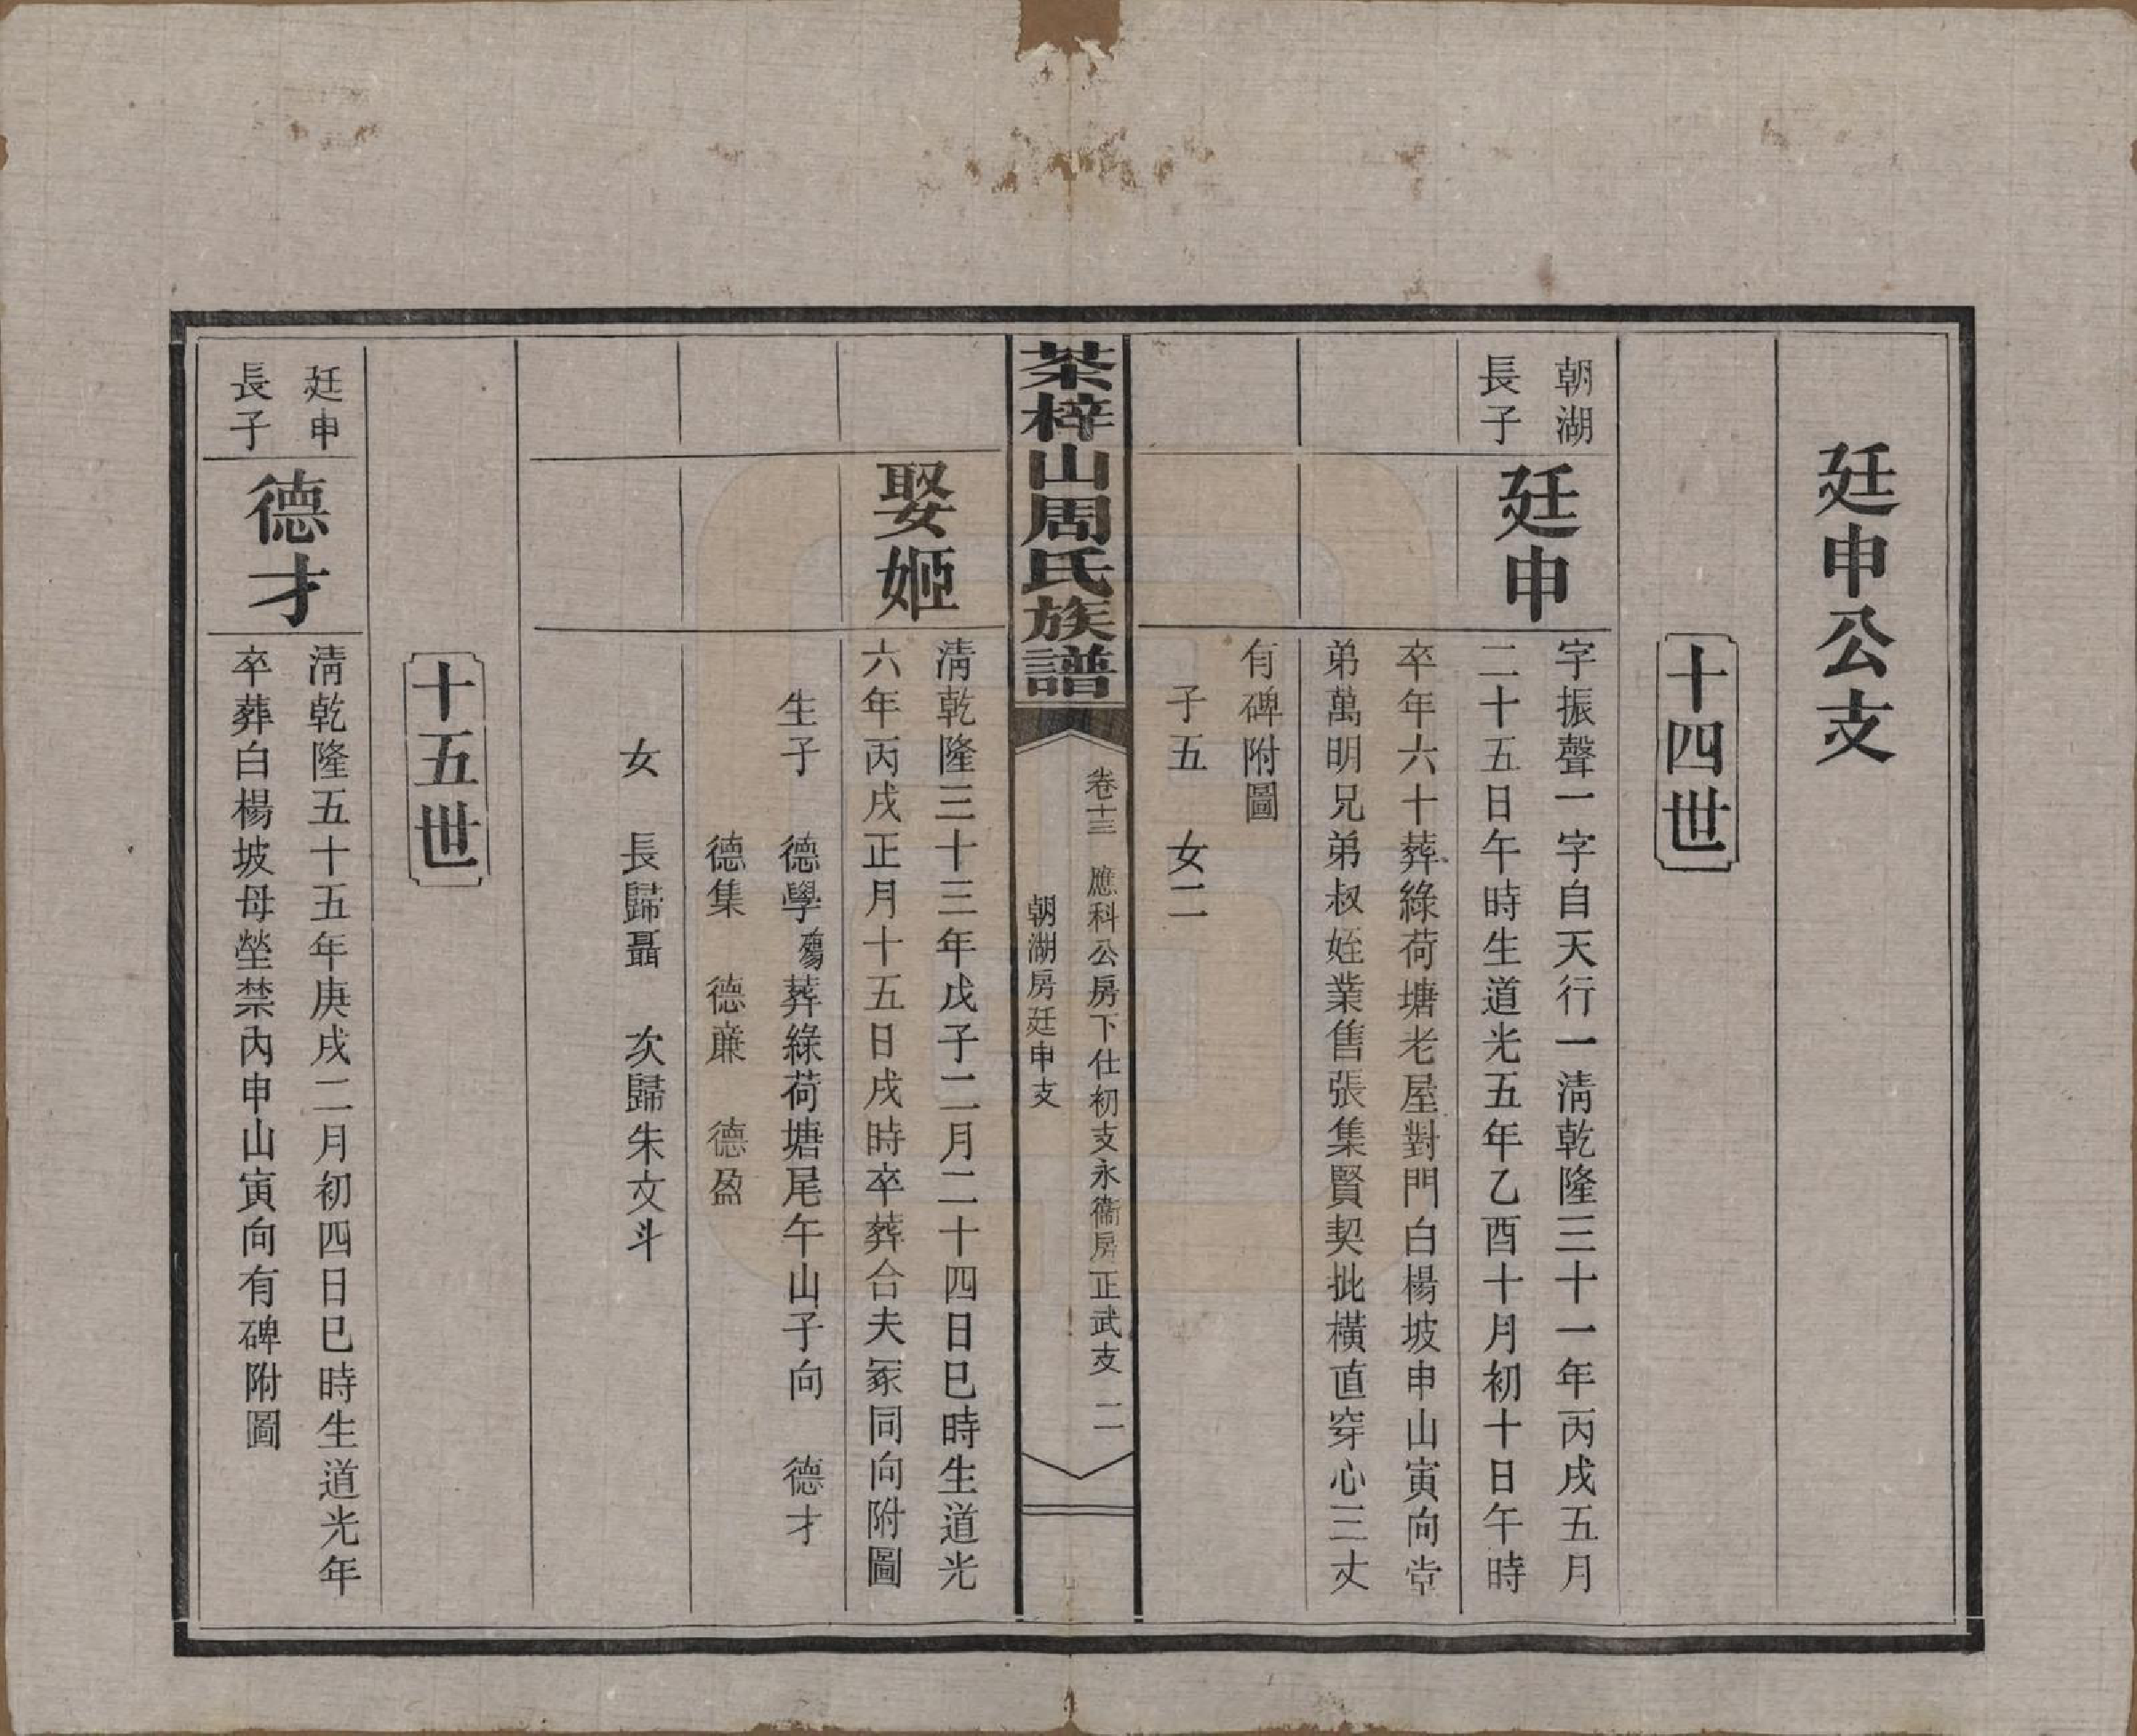 廷申公支
十四世
朝湖
長子
廷申
字振聲一字自天行一清乾隆三十一年丙戌五月
二十五日午時生道光五年乙酉十月初十日午時
卒年六十葬綠荷塘老屋對門白楊坡申山寅向堂
弟萬明兄弟叔姪業售張集賢契批橫直穿心三丈
有碑附圖
子五　女二
茶梓山周氏族譜
卷十三　應科公房下仕初支永衞房正武支　二
朝湖房廷申支
娶姬
清乾隆三十三年戊子二月二十四日巳時生道光
六年丙戌正月十五日戌時卒葬合夫冢同向附圖
生子　德學殤葬綠荷塘尾午山子向　德才
德集　德亷　德盈
女　長歸聶　次歸朱文斗
十五世
廷申
長子
德才
清乾隆五十五年庚戌二月初四日巳時生道光年
卒葬白楊坡母塋禁內申山寅向有碑附圖